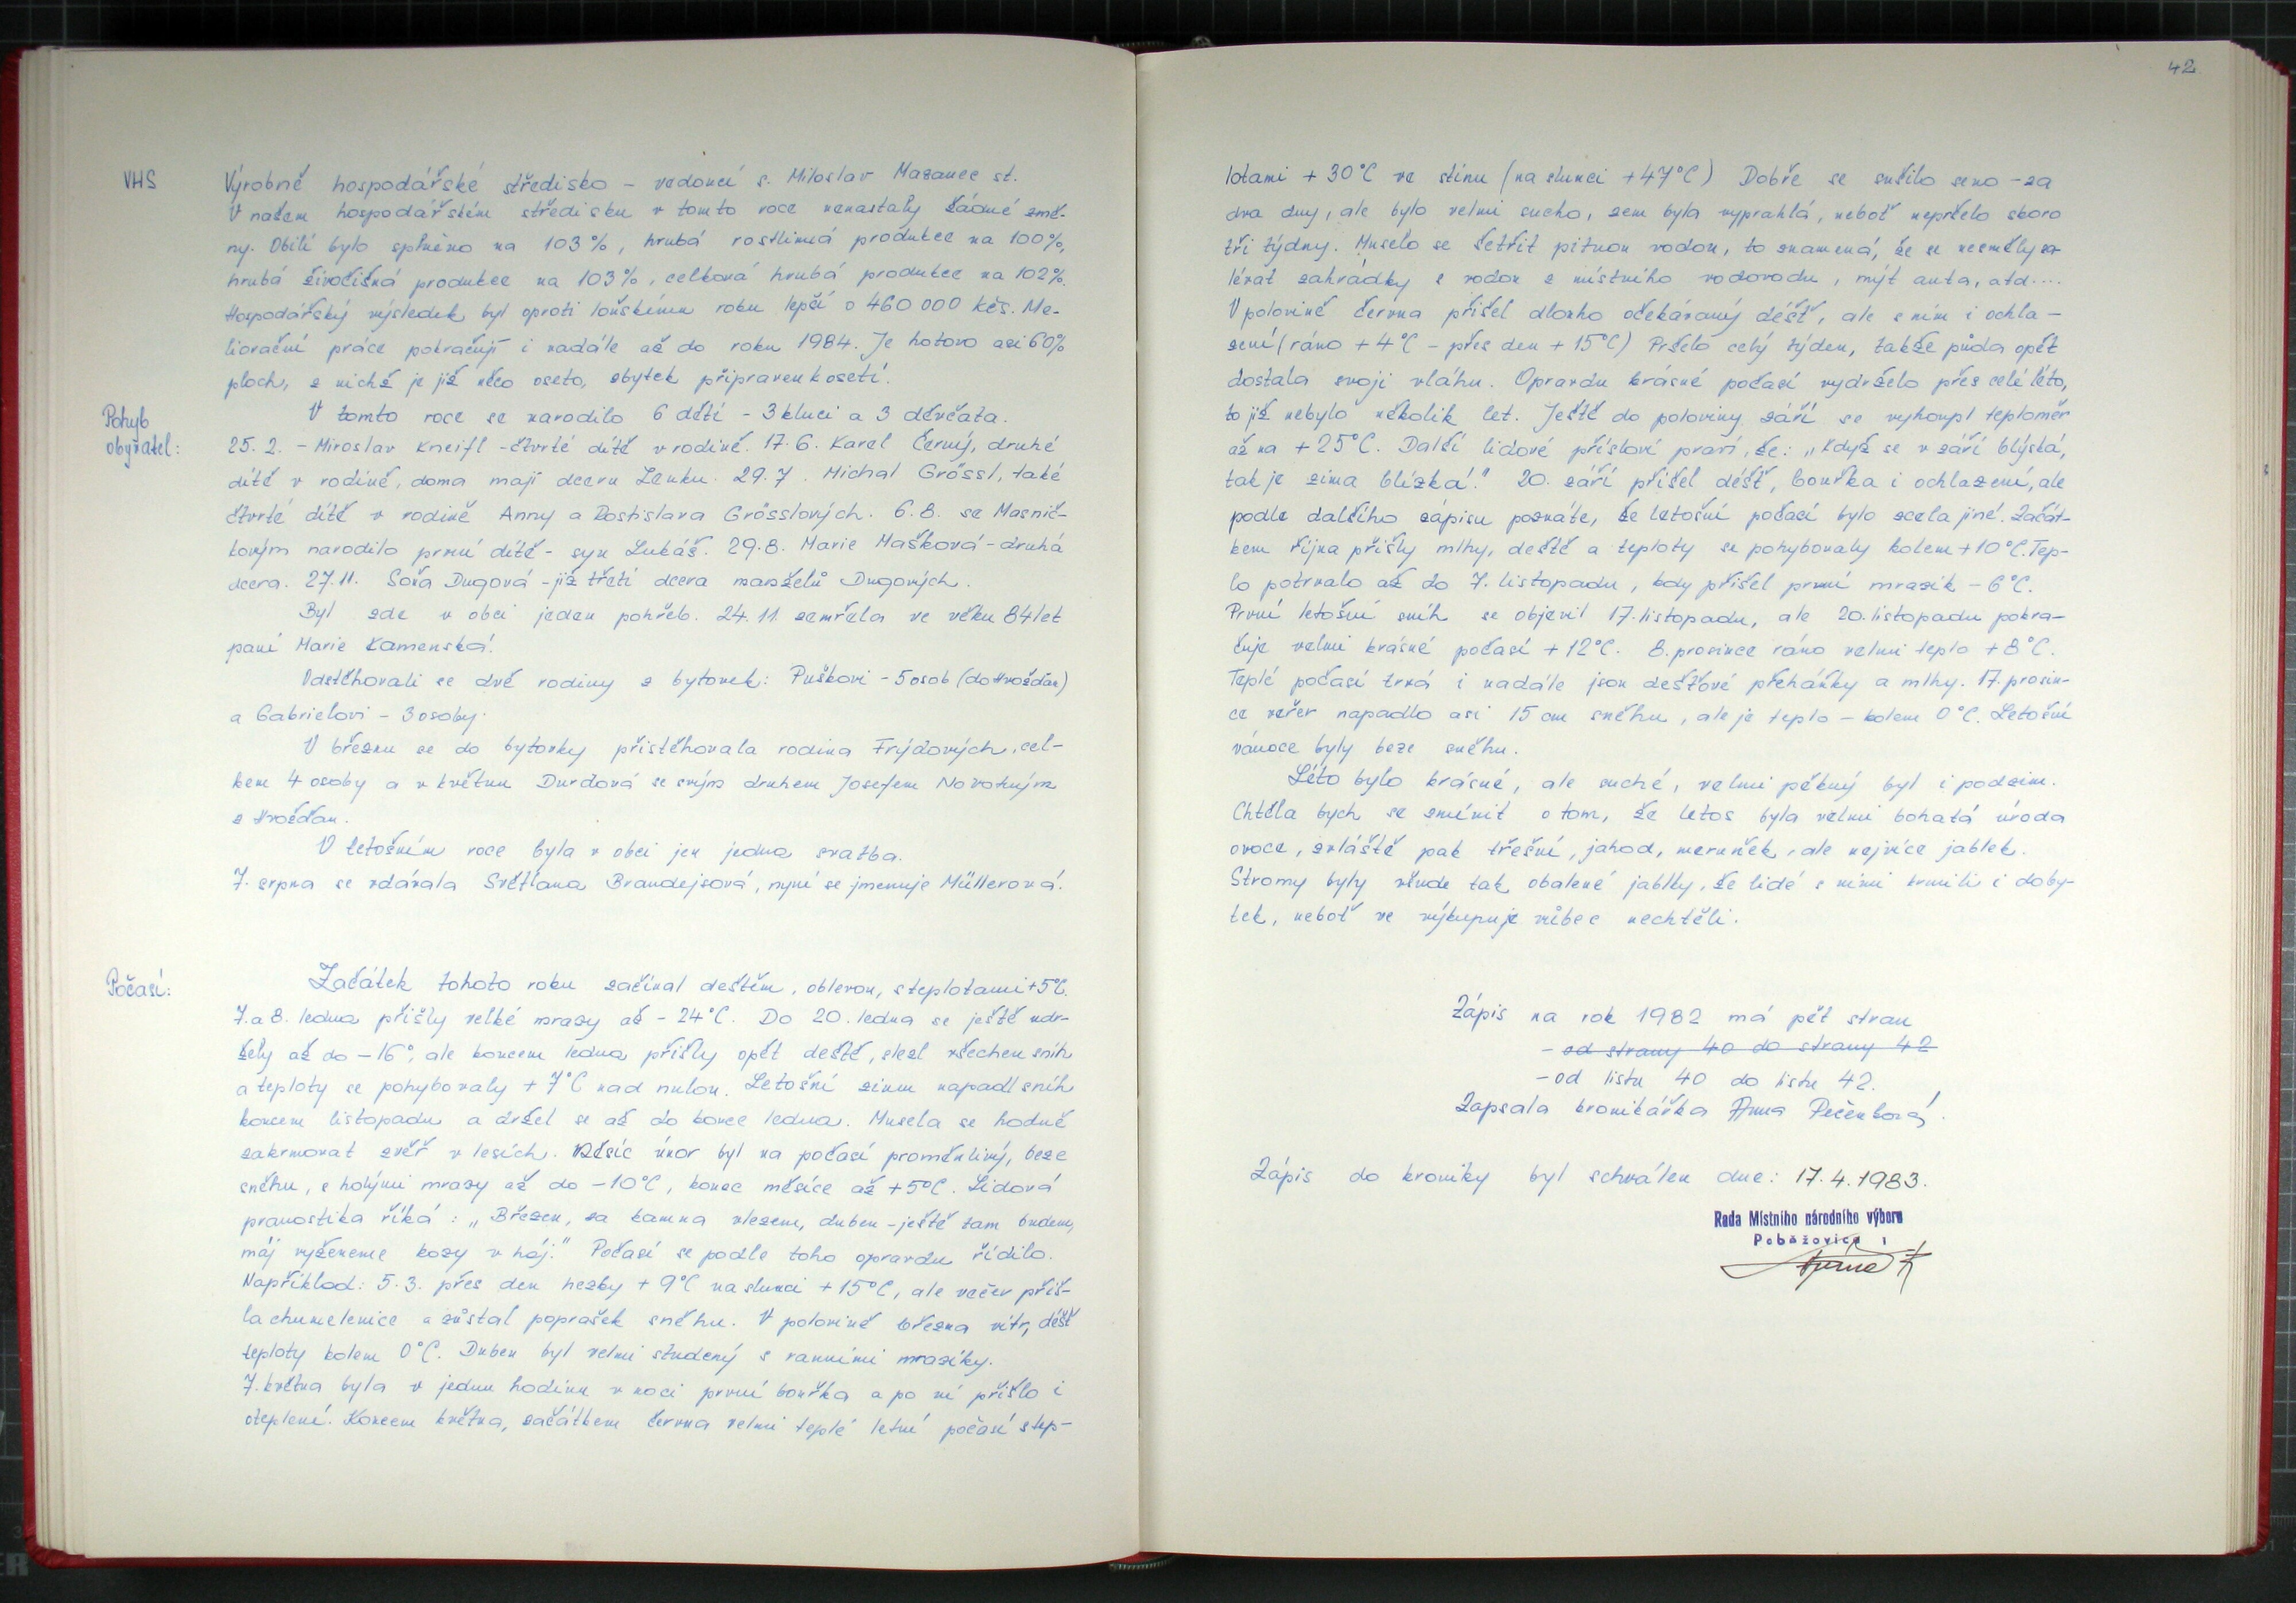 VHS
Výrobně hospodářské středisko - vedoucí s. Miloslav Mazanec st.
V našem hospodářském středisku v tomto roce nenastaly žádné změ-
ny. Obilí bylo splněno na 103%, hrubá rostlinná produkce na 100%,
hrubá živočišná produkce na 103%, celková hrubá produkce na 102%.
Hospodářský výsledek byl oproti loňskému roku lepší o 460 000 Kčs. Me-
liorační práce pokračují i nadále až do roku 1984. Je hotovo asi 60%
ploch, z nichž je již něco oseto, zbytek připraven k osetí.
Pohyb
obyvatel:
V tomto roce se narodilo 6 dětí - 3 kluci a 3 děvčata.
25. 2. - Miroslav Kneifl - čtvrté dítě v rodině. 17. 6. Karel Černý, druhé
dítě v rodině, doma mají dceru Lenku. 29. 7. Michal Grössl, také
čtvrté dítě v rodině Anny a Rostislava Grösslových. 6. 8. se Masnič-
kovým narodilo první dítě - syn Lukáš. 29. 8. Marie Mašková - druhá
dcera. 27. 11. Soňa Dugová - již třetí dcera manželů Dugových.
Byl zde v obci jeden pohřeb. 24. 11. zemřela ve věku 84 let
paní Marie Kamenská.
Odstěhovali se dvě rodiny z bytovek: Puškovi - 5 osob (do Hvožďan)
a Gabrielovi - 3 osoby.
V březnu se do bytovky přistěhovala rodina Frýdových, cel-
kem 4 osoby a v květnu Durdová se svým druhem Josefem Novotným
z Hvožďan.
V letošním roce byla v obci jen jedna svatba.
7. srpna se vdávala Světlana Brandejsová, nyní se jmenuje Müllerová.
Počasí:
Začátek tohoto roku začínal deštěm, oblevou, s teplotami +5°C.
7. a 8. ledna přišly velké mrazy až - 24°C. Do 20. ledna se ještě udr-
žely až do -16°, ale koncem ledna přišly opět deště, slezl všechen sníh
a teploty se pohybovaly + 7°C nad nulou. Letošní zimu napadl sníh
koncem listopadu a držel se až do konce ledna. Musela se hodně
zakrmovat zvěř v lesích. Měsíc únor byl na počasí proměnlivý, beze
sněhu, s holými mrazy až do -10°C, konec měsíce až +5°C. Lidová
pranostika říká: „Březen, za kamna vlezem, duben - ještě tam budem,
máj vyženeme kozy v háj." Počasí se podle toho opravdu řídilo.
Například: 5. 3. přes den hezky + 9°C na slunci +15°C, ale večer přiš-
la chumelenice a zůstal poprašek sněhu. V polovině března vítr, déšť
teploty kolem 0°C. Duben byl velmi studený s ranními mrazíky.
7. května byla v jednu hodinu v noci první bouřka a po ní přišlo i
oteplení. Koncem května, začátkem června velmi teplé letní počasí s tep-
42
lotami + 30°C ve stínu (na slunci +47°C) Dobře se sušilo seno - za
dva dny, ale bylo velmi sucho, zem byla vyprahlá, neboť nepršelo skoro
tři týdny. Muselo se šetřit pitnou vodou, to znamená, že se nesměly za
lévat zahrádky s vodou z místního vodovodu, mýt auta, atd....
V polovině června přišel dlouho očekávaný déšť, ale s ním i ochla-
zení (ráno + 4°C - přes den + 15°C) Pršelo celý týden, takže půda opět
dostala svoji vláhu. Opravdu krásné počasí vydrželo přes celé léto,
to již nebylo několik let. Ještě do poloviny září se vyhoupl teploměr
až na +25°C. Další lidové přísloví praví, že: „Když se v září blýská,
tak je zima blízká." 20. září přišel déšť, bouřka i ochlazení, ale
podle dalšího zápisu poznáte, že letošní počasí bylo zcela jiné. Začát-
kem října přišly mlhy, deště a teploty se pohybovaly kolem +10°C. Tep-
lo potrvalo až do 7. listopadu, kdy přišel první mrazík - 6°C.
První letošní sníh se objevil 17. listopadu, ale 20. listopadu pokra-
čuje velmi krásné počasí +12°C. 8. prosince ráno velmi teplo +8°C.
Teplé počasí trvá i nadále jsou dešťové přeháňky a mlhy. 17. prosin-
ce večer napadlo asi 15 cm sněhu, ale je teplo - kolem 0°C. Letošní
vánoce byly beze sněhu.
Léto bylo krásné, ale suché, velmi pěkný byl i podzim.
Chtěla bych se zmínit o tom, že letos byla velmi bohatá úroda
ovoce, zvláště pak třešní, jahod, meruněk, ale nejvíce jablek.
Stromy byly všude tak obalené jablky, že lidé s nimi krmili i doby-
tek, neboť ve výkupu je vůbec nechtěli.
Zápis na rok 1982 má pět stran
- od strany 40 do strany 42
- od listu 40 do listu 42.
Zapsala kronikářka Anna Pečenková.
Zápis do kroniky byl schválen dne: 17. 4. 1983.
Rada Místního národního výboru
Poběžovice